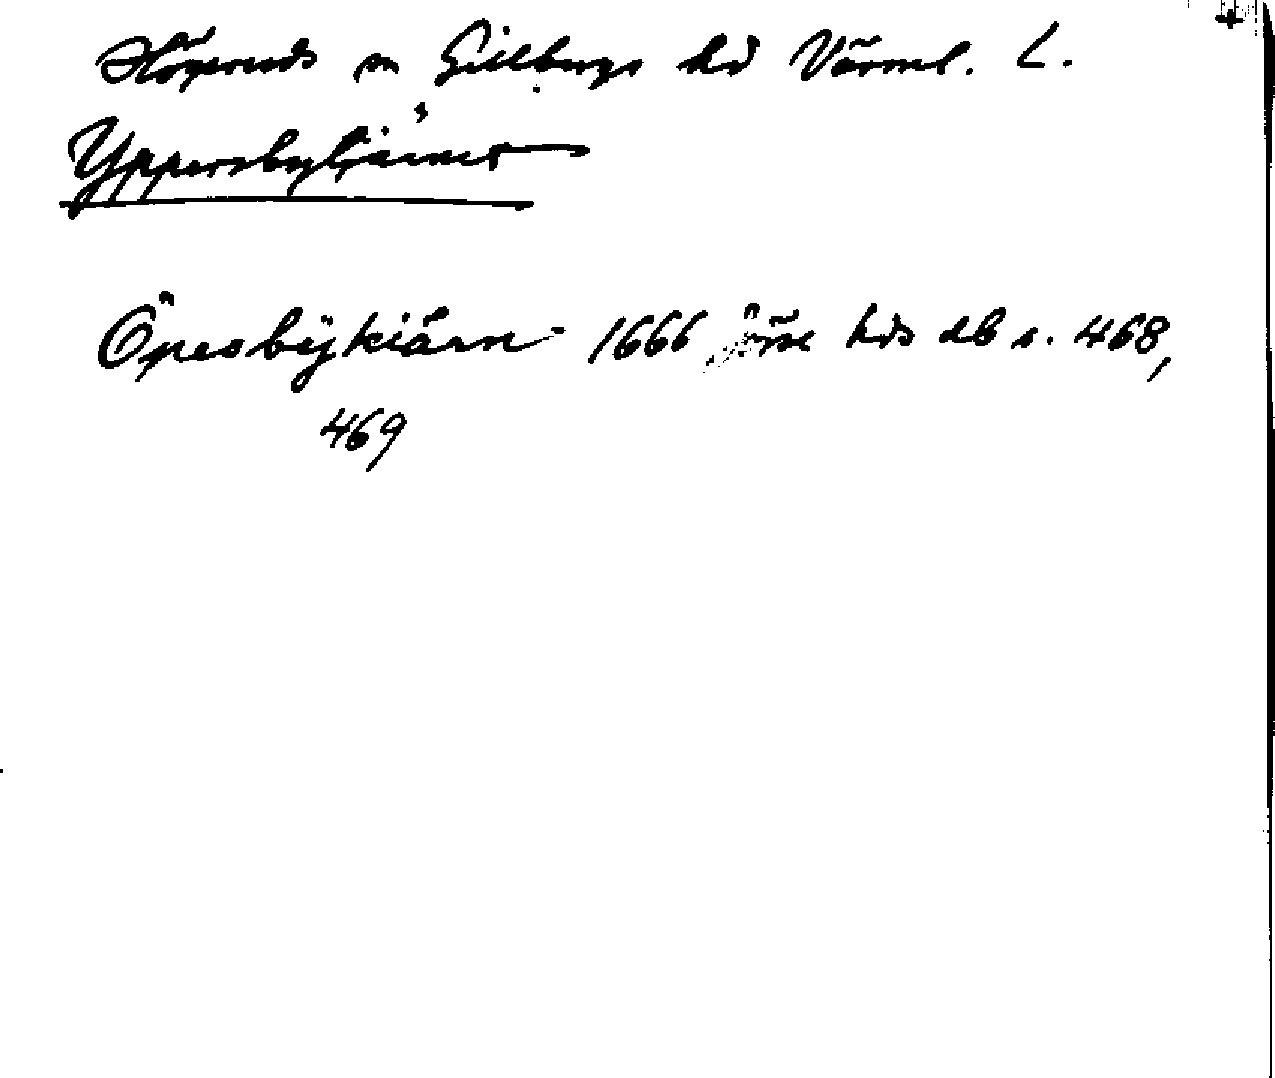 Högeruds sn Gillbergs hd Värml. L.
Yppersbytjärnet
Öpesbÿkiärn 1666 Jösse hds db s. 468,
469